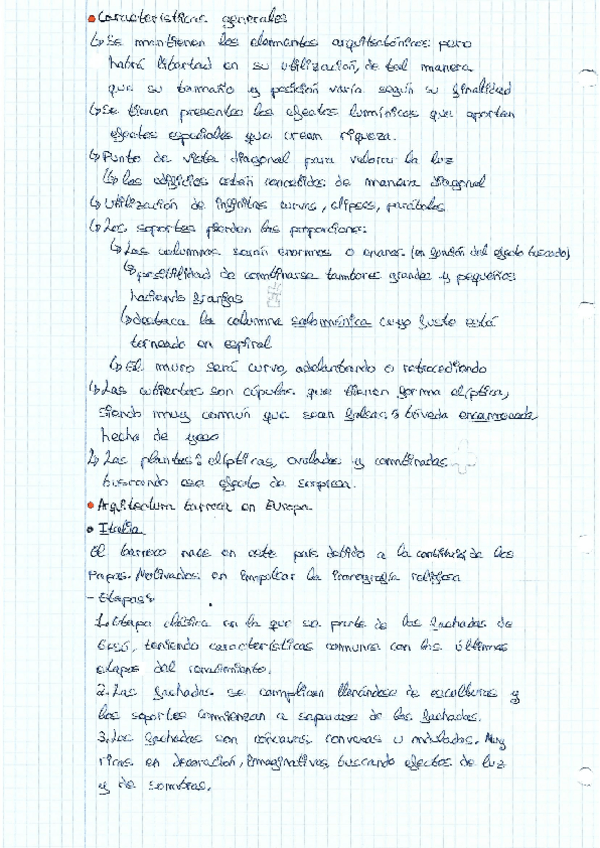 • Características generales
↳ Se mantienen los elementos arquitectónicos pero
habrá libertad en su utilización, de tal manera
que su tamaño y posición varía según su finalidad
↳ Se tienen presentes los efectos lumínicos que aportan
efectos especiales que crean riqueza.
↳ Punto de vista diagonal para valorar la luz
↳ los edificios están concebidos de manera diagonal
↳ Utilización de infinitas curvas, elipses, parábolas
↳ Los soportes pierden las proporciones:
↳ Las columnas serán enormes o enanas (en función del efecto buscado)
↳ posibilidad de combinarse tambores grandes y pequeños
haciendo franjas
↳ destaca la columna salomónica cuyo fuste está
torneado en espiral
↳ El muro será curvo, adelantando o retrocediendo
↳ Las cubiertas son cúpulas que tienen forma elíptica,
siendo muy común que sean falsas ⇒ bóveda encamonada
hecha de yeso
↳ Las plantas: elípticas, ovaladas y combinadas
buscando ese efecto de sorpresa.
• Arquitectura barroca en Europa
• Italia
El barroco nace en este país debido a la de los
Papas. Motivados en impulsar la iconografía religiosa
- Etapas:
1. Etapa clásica en la que se parte de las fachadas de
Gesú, teniendo características comunes con las últimas
etapas del renacimiento.
2. Las fachadas se complican llenándose de esculturas y
los soportes comienzan a separarse de las fachadas.
3. Las fachadas son cóncavas, convexas u onduladas. Muy
ricas en decoración, imaginativas, buscando efectos de luz
y de sombras.